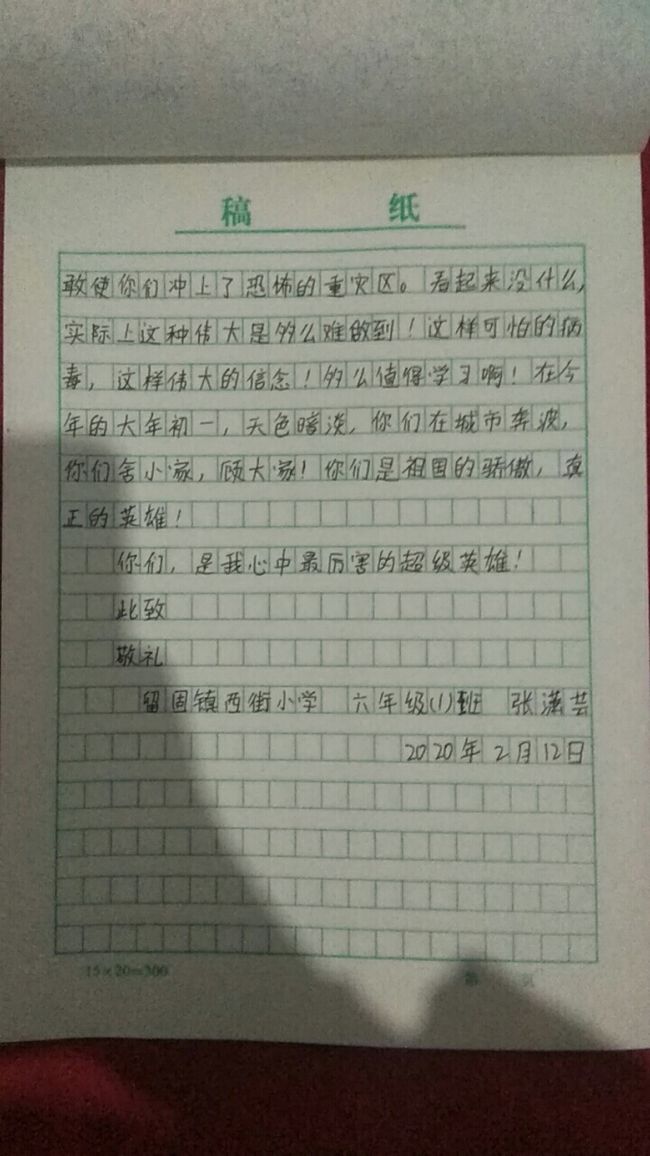 稿 纸
敢使你们冲上了恐怖的重灾区。看起来没什么,
实际上这种伟大是多么难做到!这样可怕的病
毒,这样伟大的信念!多么值得学习啊!在今
年的大年初一,天色暗淡,你们在城市奔波,
你们舍小家,顾大家!你们是祖国的骄傲,真
正的英雄!
你们,是我心中最厉害的超级英雄!
此致
敬礼
留固镇西街小学 六年级(1)班 张潇芸
2020年2月12日
15×20=300
第 页